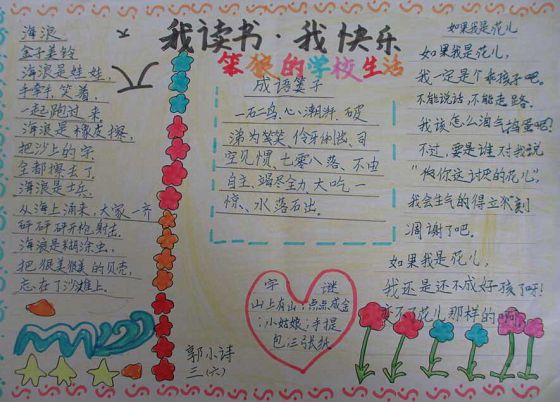 我读书·我快乐
笨狼的学校生活
海浪
金子美铃
海浪是娃娃,
手牵手,笑着,
一起跑过来。
海浪是橡皮擦,
把沙上的字,
全都擦去了。
海浪是士兵,
从海上涌来,大家一齐
砰砰砰开枪射击。
海浪是糊涂虫,
把很美很美的贝壳,
忘在了沙滩上。
成语篓子
一石二鸟、心潮
涕为笑、伶牙俐齿、司
空见惯、七零八落、不由
自主、竭尽全力、大吃一
惊、水落石出。
字谜
山上有山;点点成金
;小姑娘,手提
包;三张纸
郭小诗
三(六)
如果我是花儿
如果我是花儿,
我一定是个乖孩子吧。
不能说话,不能走路,
我该怎么淘气捣蛋呢?
不过,要是谁对我说
"你这讨厌的花儿",
我会生气的得立刻
凋谢了吧。
如果我是花儿,
我还是还不成好孩子呀!
变不了花儿那样的啊